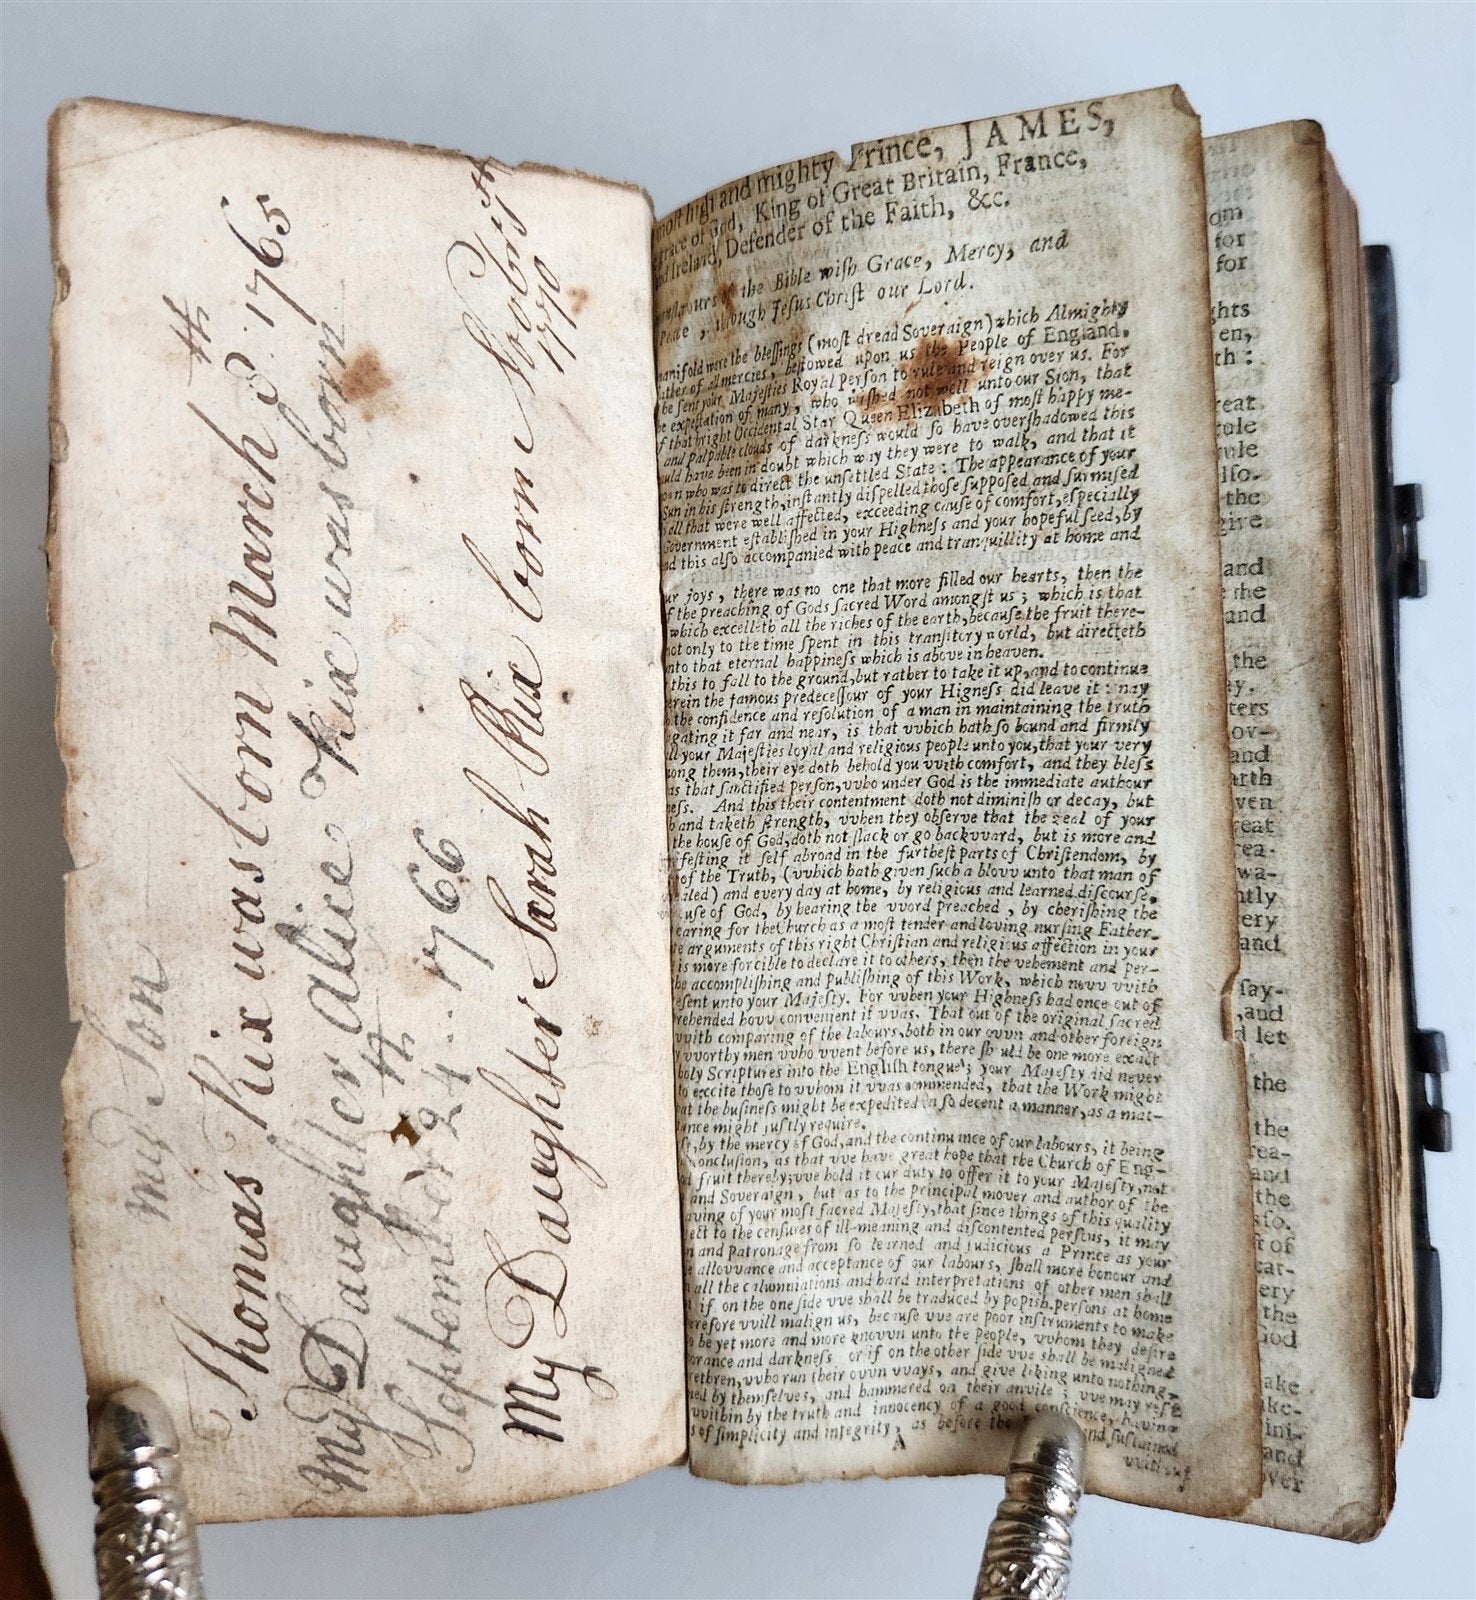 My Son
Thomas Rix was born March 8th 1765
My Daughter Alice Rix was born
September 24th 1766
My Daughter Sarah Rix born
1770
most high and mighty Prince, JAMES,
grace of God, King of Great Britain, France,
and Ireland, Defender of the Faith, &c.
of the Bible wish Grace, Mercy, and
Peace, through Jesus Christ our Lord.
manifold were the blessings (most dread Soveraign) which Almighty
father of all mercies, bestowed upon us the People of England,
he sent your Majesties Royal Person to rule and reign over us. For
he expectation of many, who wished not well unto our Sion, that
f that bright Occidental Star Queen Elizabeth of most happy me-
and palpable clouds of darkness would so have overshadowed this
ould have been in doubt which way they were to walk, and that it
own who was to direct the unsettled State: The appearance of your
Sun in his strength, instantly dispelled those supposed and surmised
all that were well affected, exceeding cause of comfort, especially
Government established in your Highness and your hopeful seed, by
nd this also accompanied with peace and tranquillity at home and
ur joys, there was no one that more filled our hearts, then the
f the preaching of Gods sacred Word amongst us; which is that
which excelleth all the riches of the earth, because the fruit there-
not only to the time spent in this transitory world, but directeth
nto that eternal happiness which is above in heaven.
this to fall to the ground, but rather to take it up, and to continue
erein the famous predecessour of your Higness did leave it: nay
the confidence and resolution of a man in maintaining the truth
gating it far and near, is that vvhich hath so bound and firmly
ll your Majesties loyal and religious people unto you, that your very
ong them, their eye doth behold you vvith comfort, and they bless
as that sanctified person, vvho under God is the immediate authour
ness. And this their contentment doth not diminish or decay, but
and taketh strength, vvhen they observe that the zeal of your
the house of God, doth not slack or go backvvard, but is more and
festing it self abroad in the furthest parts of Christendom, by
of the Truth, (vvhich hath given such a blovv unto that man of
ealed) and every day at home, by religious and learned discourse,
use of God, by hearing the vvord preached, by cherishing the
earing for the Church as a most tender and loving nursing Father.
e arguments of this right Christian and religious affection in your
is more forcible to declare it to others, then the vehement and per-
he accomplishing and publishing of this Work, which novv vvith
esent unto your Majesty. For vvhen your Highness had once out of
rehended hovv convenient it vvas, That out of the original sacred
vvith comparing of the labours, both in our ovvn and other foreign
y vvorthy men vvho vvent before us, there sh uld be one more exact
holy Scriptures into the English tongue; your Majesty did never
to excite those to vvhom it vvas commended, that the Work might
at the business might be expedited in so decent a manner, as a mat-
tance might justly require.
, by the mercy of God, and the continuance of our labours, it being
conclusion, as that vve have great hope that the Church of Eng-
d fruit thereby; vve hold it our duty to offer it to your Majesty, not
and Soveraign, but as to the principal mover and author of the
aving of your most sacred Majesty, that since things of this quality
ect to the censures of ill-meaning and discontented persons, it may
n and Patronage from so learned and judicious a Prince as your
e allovvance and acceptance of our labours, shall more honour and
all the calumniations and hard interpretations of other men shall
if on the one side vve shall be traduced by popish persons at home
erefore vvill malign us, because vve are poor instruments to make
o be yet more and more knovvn unto the people, vvhom they desire
orance and darkness or if on the other side vve shall be maligned
rethren, vvho run their ovvn vvays, and give liking unto nothing,
ned by themselves, and hammered on their anvile; vve may rest
vvithin by the truth and innocency of a good conscience, having
s of simplicity and integrity, as before the and sustained
A
om
for
for
ghts
en,
th:
reat
rule
rule
lso.
the
give
and
she
and
the
ay.
ters
ov-
and
arth
ven
reat
rea-
wa-
ntly
ery
and
say-
,and
d let
the
the
rea-
and
the
so.
t of
eat-
ery
the
God
ake
ke-
ini-
and
over